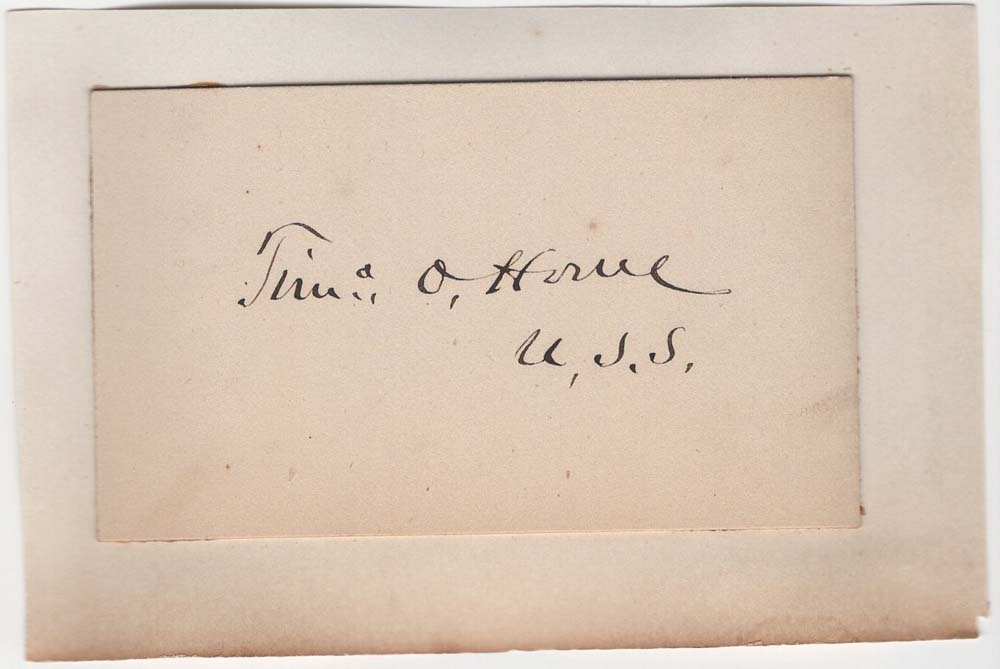 Timº. O. Howe
U.S.S.